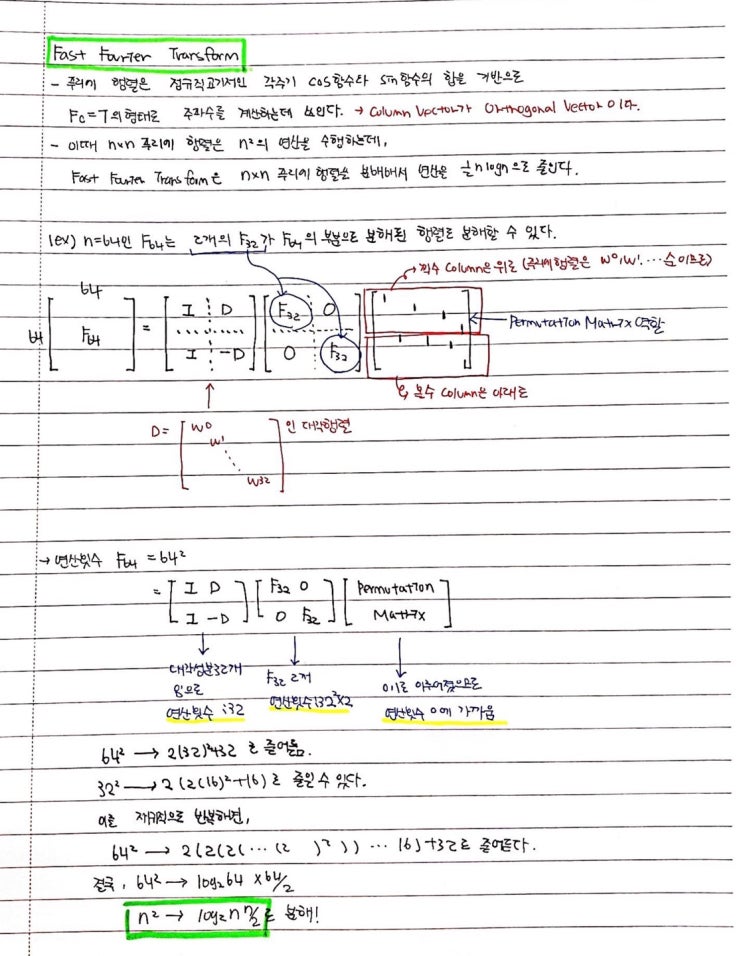 Fast Fourier Transform
- 푸리에 행렬은 정규직교기저인 각주기 cos함수와 sin함수의 합을 기반으로
Fc=T의형태로 주파수를 계산하는데 쓰인다. → Column Vector가 Orthogonal Vector이다.
- 이때 n×n 푸리에 행렬은 n²의 연산을 수행하는데,
Fast Fourier Transform은 n×n 푸리에 행렬을 분해해서 연산을 ½nlogn으로 줄인다.
(ex) n=64인 F64는 2개의 F32가 F64의 부분으로 분해된 행렬로 분해할 수 있다.
→짝수 Column은 위로 (푸리에 행렬은 W⁰, W¹, ... 순이므로)
64
64 [F64] = [I D I -D] [F32 O O F32] [1 1 1 1 1 1]
Permutation Matrix 역할
홀수 Column은 아래로
D= [W⁰ W¹ ⋱ W32] 인 대각행렬
→ 연산횟수 F64 = 64²
= [I D I -D] [F32 0 0 F32] [Permutation Matrix]
대각성분32개 F32 2개 0,1로 이루어졌으므로
임으로 연산횟수:32²×2 연산횟수 0에 가까움
연산횟수 :32
64² → 2(32)²+32 로 줄어듦.
32² → 2(2(16)²+16)로 줄일 수 있다.
이를 재귀적으로 반복하면,
64² → 2(2(2(...(2 )²)) ... 16)+32로 줄어든다.
결국, 64² → log₂64 × 64/2
n² → log₂n n/2 로 분해!